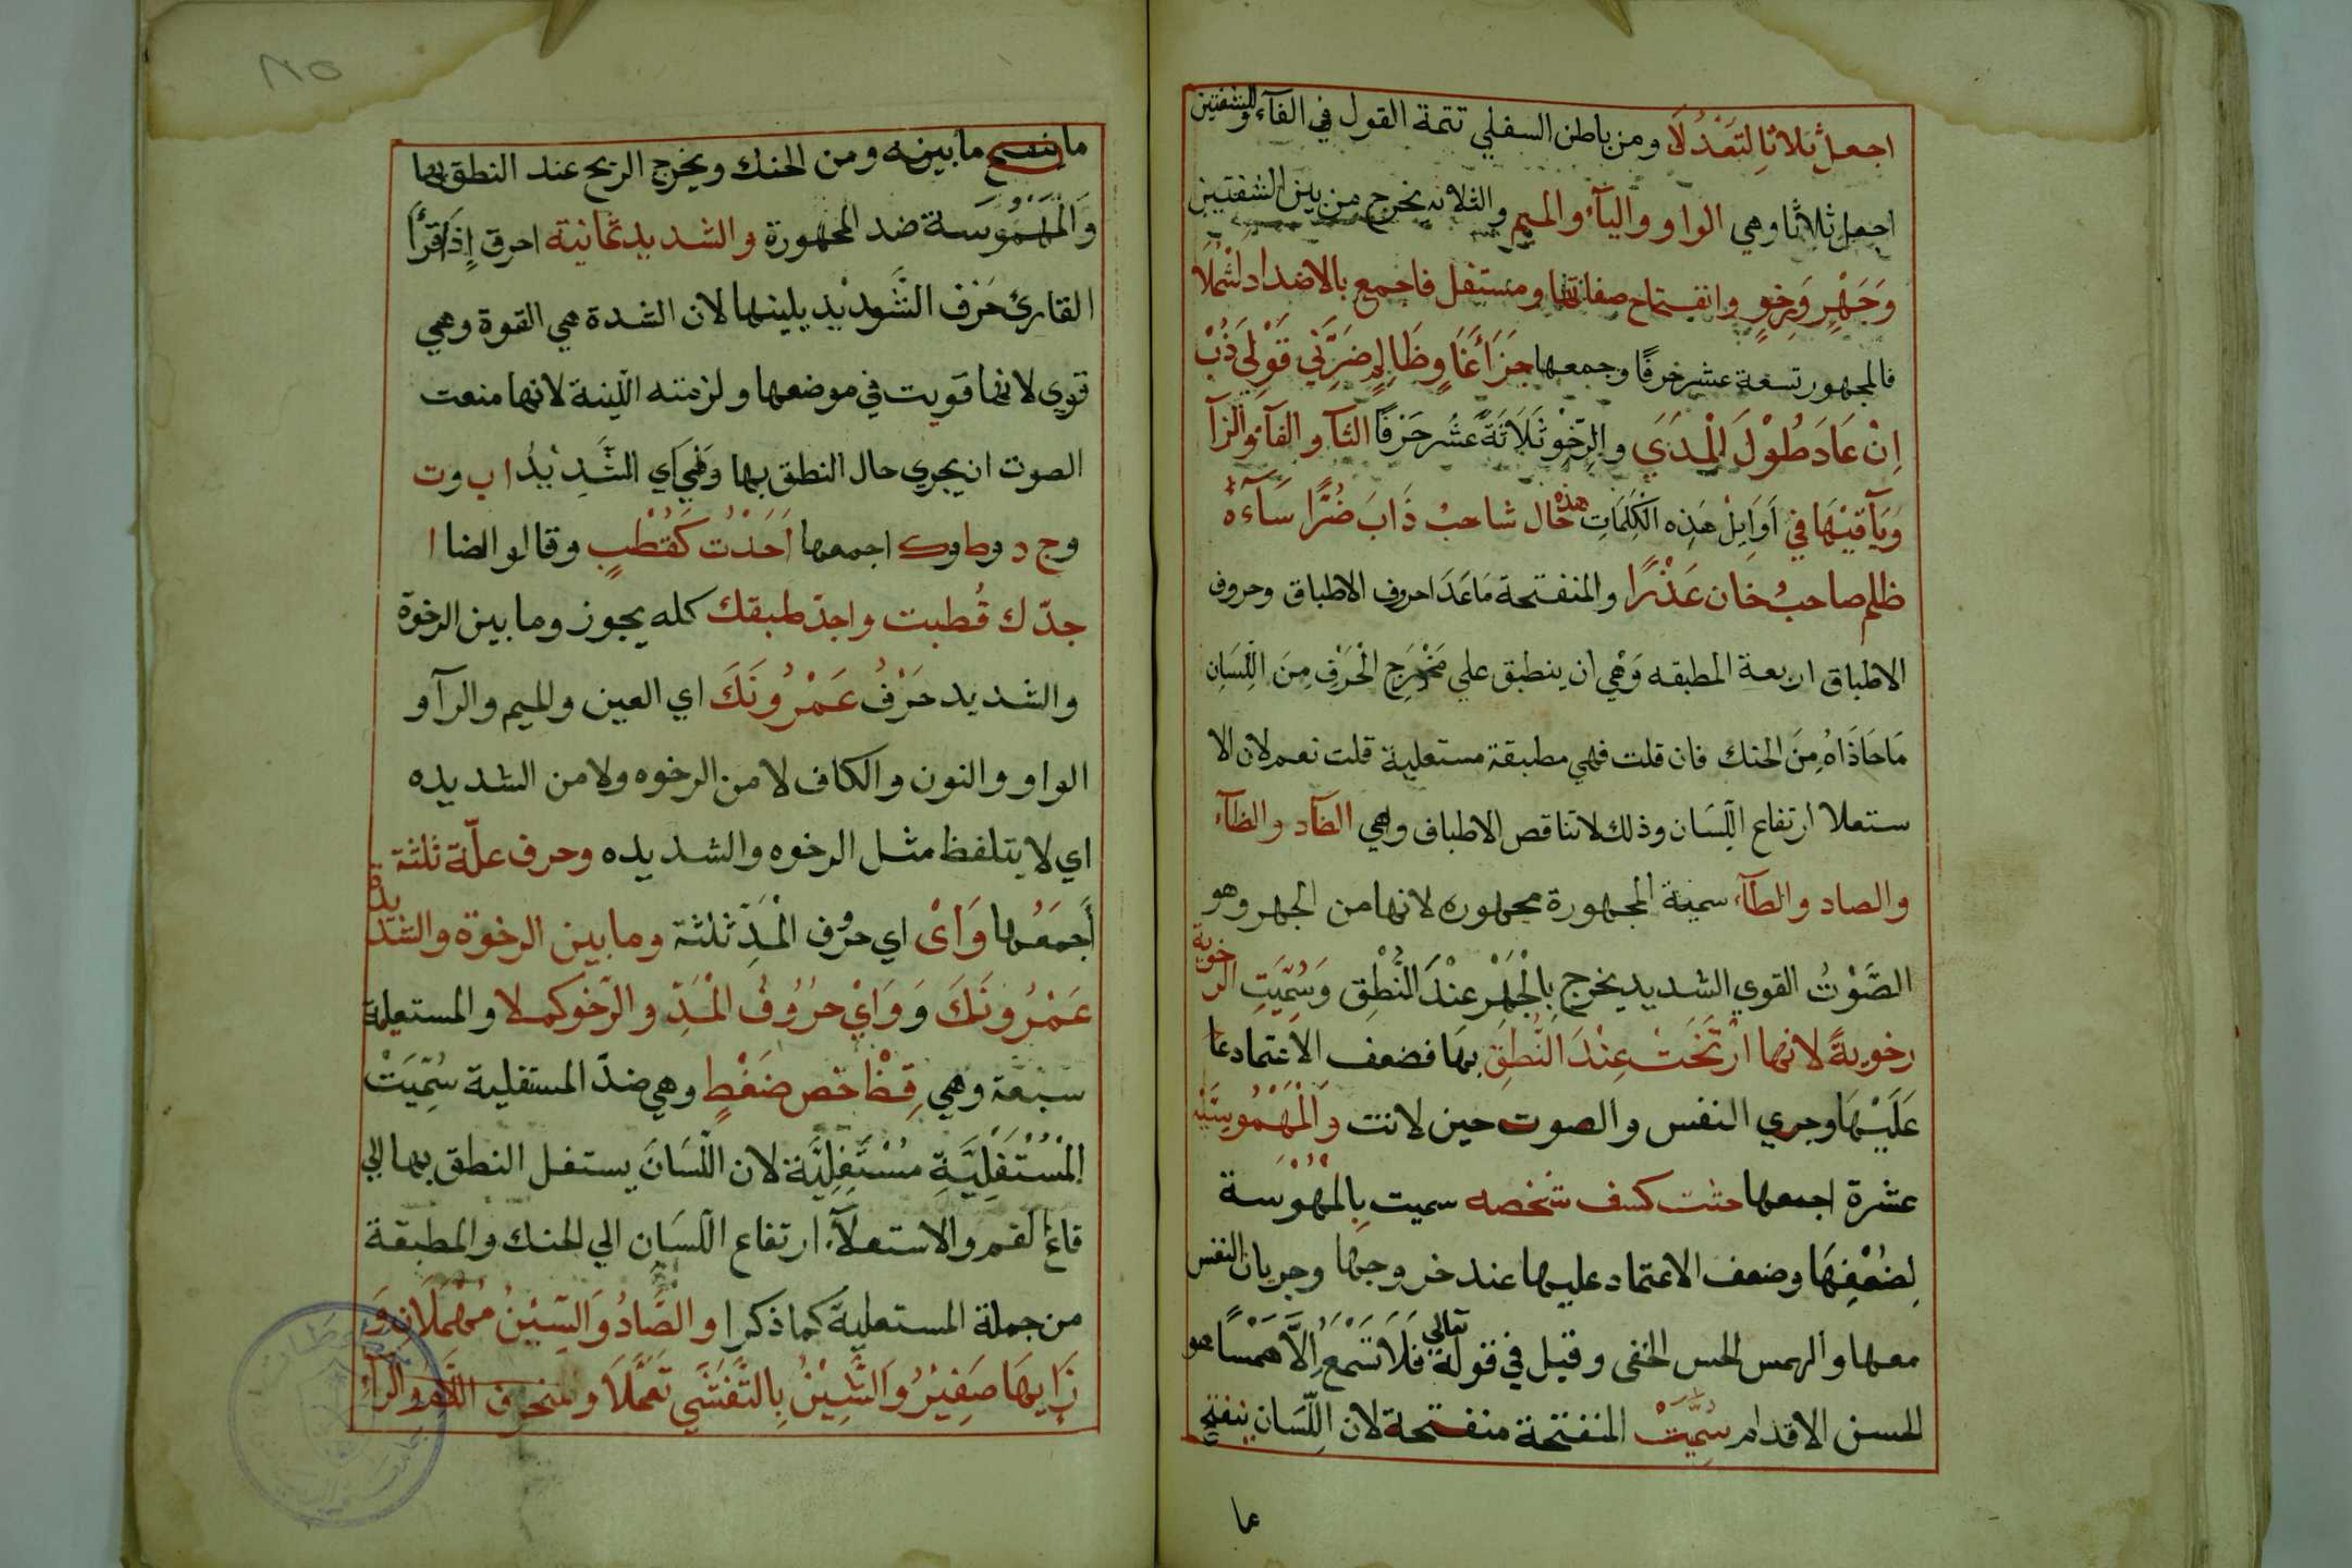 اجعل ثلاثا لتعدلا ومن باطن السفلي تتمة القول في الفآء وللشفتين
اجعل ثلاثا وهي الواو والبآء والميم والثلاثه يخرج من بين الشفتين
وَجَهْرٍ وَرِخوٍ وانفتاح صفاتها ومستفل فاجمع بالاضداد اشملا
فالمجهور تسعة عشر حرفًا وجمعها جَزَأ غَاوٍ وظالمٍ ضرّني قَوْلي ذُبْ
اِنْ عَادَ طُوْلَ الْمدَي والرّخو ثَلَاثَةَ عشر حَرْفًا الثآ والفآء والزآ
وَبَآقيْهَا في اَوَايِلْ هَذِه الكَلِمَاتِ هذه خال شاحبْ ذَابَ ضُرًّا سَآءَهُ
ظلم صاحبُ خَان عَذْرًا والمنفتحة مَاعَدَا حروف الاطباق وحروف
الاطباق اربعة المطبقه وَهْي ان ينطبق علي مَخْرَج الْحَرْفِ مِنَ اللِّسَانِ
مَاحَاذَاهُ مِنَ الحنك فان قلت فهي مطبقة مستعلية قلت نعم لان الا
ستعلا ارتفاع اللِّسَان وذلك لا تناقص الاطباق وهي الضآد والظآء
والصاد والطآء سمية المجهورة مجهوره لانها من الجهر وهو
الصَّوْتُ القوي الشديد يخرج بِالْجَهْرِ عنْدَ النُّطْقِ وَسُمِّيَتِ الرخوية
رخويةً لانها ارْتَخَتْ عِنْدَ النُّطِق بهَا فضعف الاعتماد عا
عَلَيْهَا وجري النفس والصوت حين لانت وَالْمَهْمُوسيّة
عشرة اجمعها حثت كسف شخصه سميت بِالْمهمُوسة
لِضُعْفِهَا وضعف الاعتماد عليها عند خروجها وجريان النفس
معها والهمس الحس الخفى وقيل في قوله تعالي فَلَا تَسْمَعُ اِلَّا هَمْسًا هو
الحسن الاقدام سُمِّيَتْ المنفتحة منفتحة لان اللِّسَان ينفتح
عا
ما ينفتح ما بينه ومن الحنك ويخرج الريح عند النطق بها
وَالْمَهْمُوسَة ضد المجهورة والشديد ثمانية احرق إِذَا قَرَأ
القارئ حَرْف الشَّديْد يلينها لان الشدة هي القوة وهي
قوي لانها قويت في موضعها ولزمته اللينة لانها منعت
الصوت ان يجري حال النطق بها وَهْيَ اي الشَّدِيْدُ ا ب وت
وج د وط وك اجمعها اَجَدْتَ كَقُطْبٍ وقالو ايضا ا
جدّك قُطبت واجدّ طبقك كله يجوز وما بين الرخوة
والشديد حَرْفُ عَمْرُونَكَ اي العين والميم والرآ و
الواو والنون والكاف لا من الرخوه ولا من الشديده
اي لا يتلفظ مثل الرخوه والشديده وحرف علّة ثلثة
اَجمَعُها وَاىْ اي حرُوف الْمَدِّ ثلثة وما بين الرخوة والشديدة
عَمْرُونَكَ وَوَايْ حرُوُفُ الْمَدِّ والرّخو كملا والمستعلية
سَبْعَة وهي قِظْ خُصَّ ضَغْطٍ وهي ضدّ المستفلية سُمِّيَتْ
الْمُسْتَفِلِيَّةِ مُسْتَفِلِيَّة لان اللّسَانَ يستفل النطق بها الي
قاع الفم والاستعلآء ارتفاع اللسَان الي الحنك والمطبقة
من جملة المستعلية كما ذكرا والصَّادُ وَالسّيْنُ مُهْمَلَانِ وَ
زَايهَا صَفِيْرُ وَالشّيْنُ بِالتَّفَشّي تَعمَّلَا ومنحرف اللام والرآء